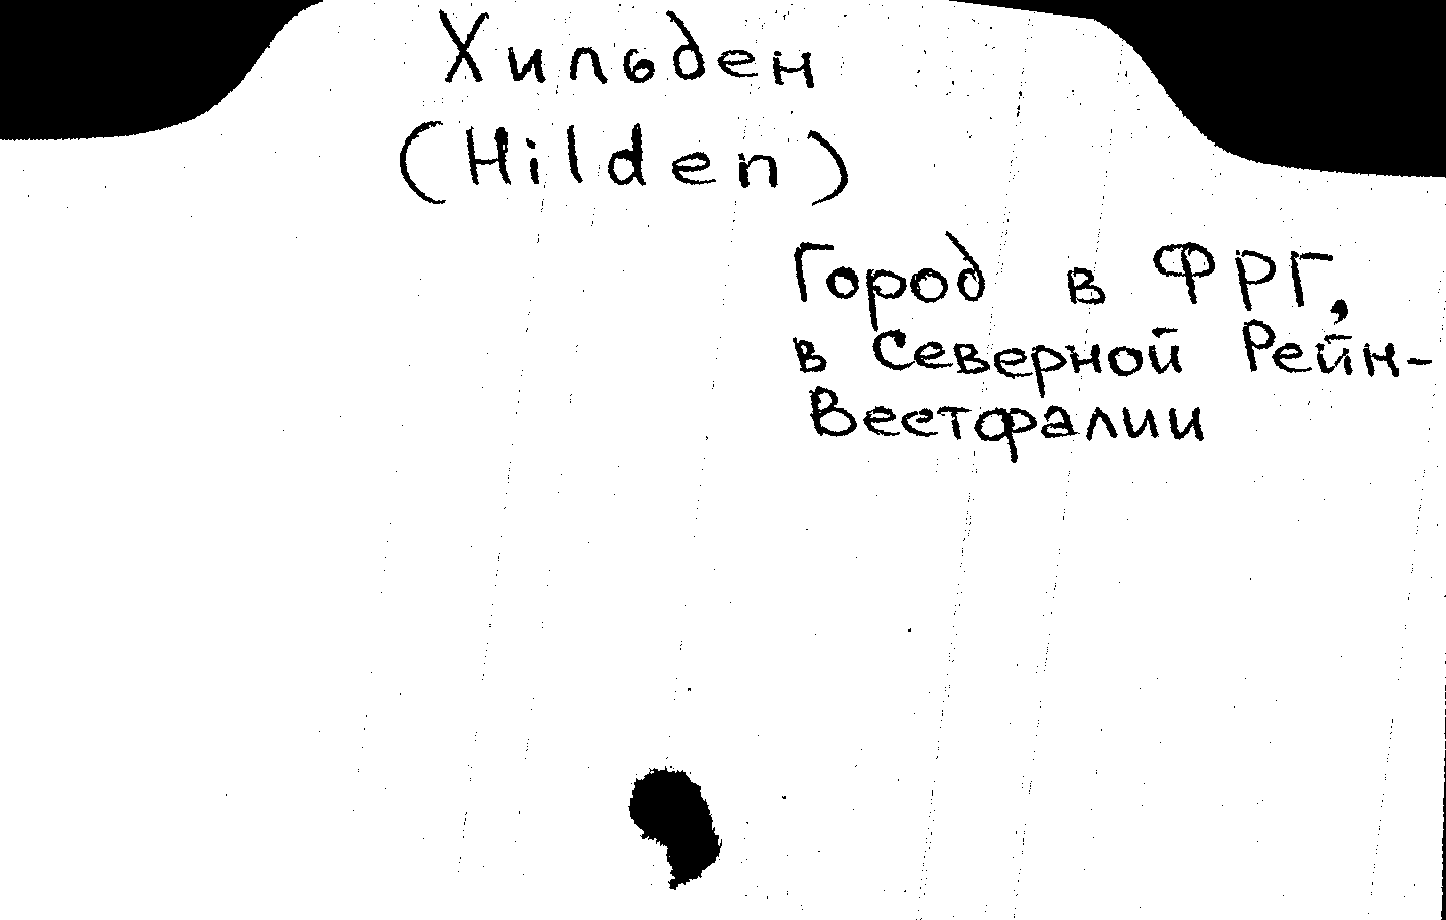 Хильден
(Hilden)
Город в ФРГ,
в Северной Рейн-
Вестфалии